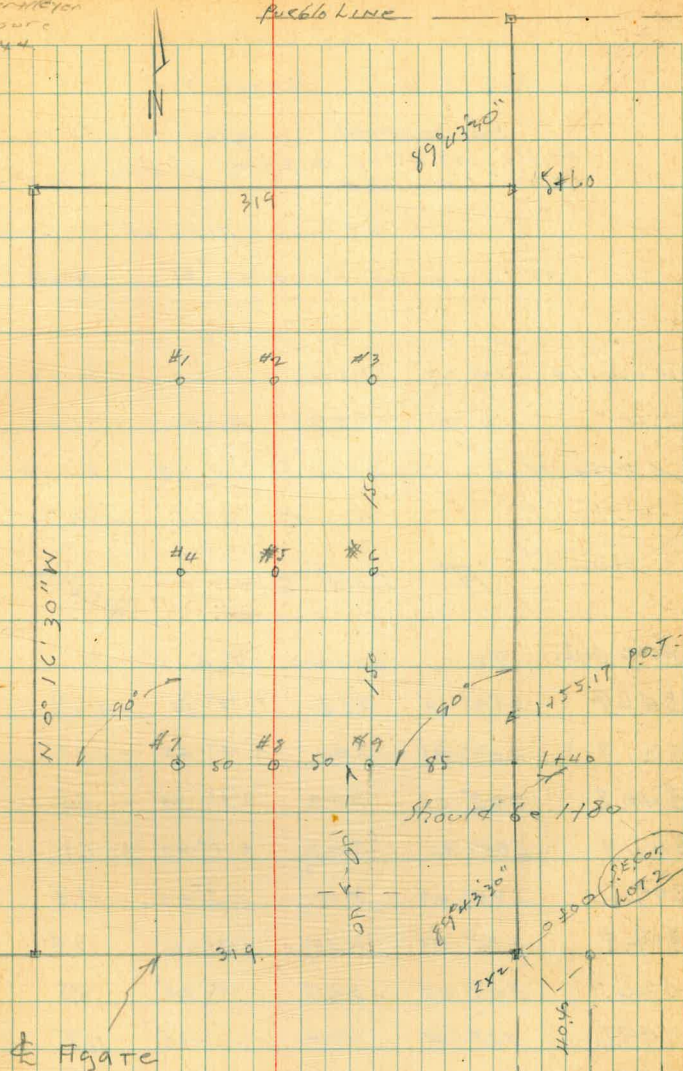 Pueblo LINE
N
89°43'30"
319
5+60
#1 #2 #3
150
#4 #5 # 6
N 0° 12' 30" W
150
90° 90°
1+55.17 P.O.T.
#7 50 #8 50 #9 85 1+40
Should be 1+80
140
40
89°43'30"
0+00
S.E. Cor.
LOT 2
319.
2x2
40.40
℄ Agate